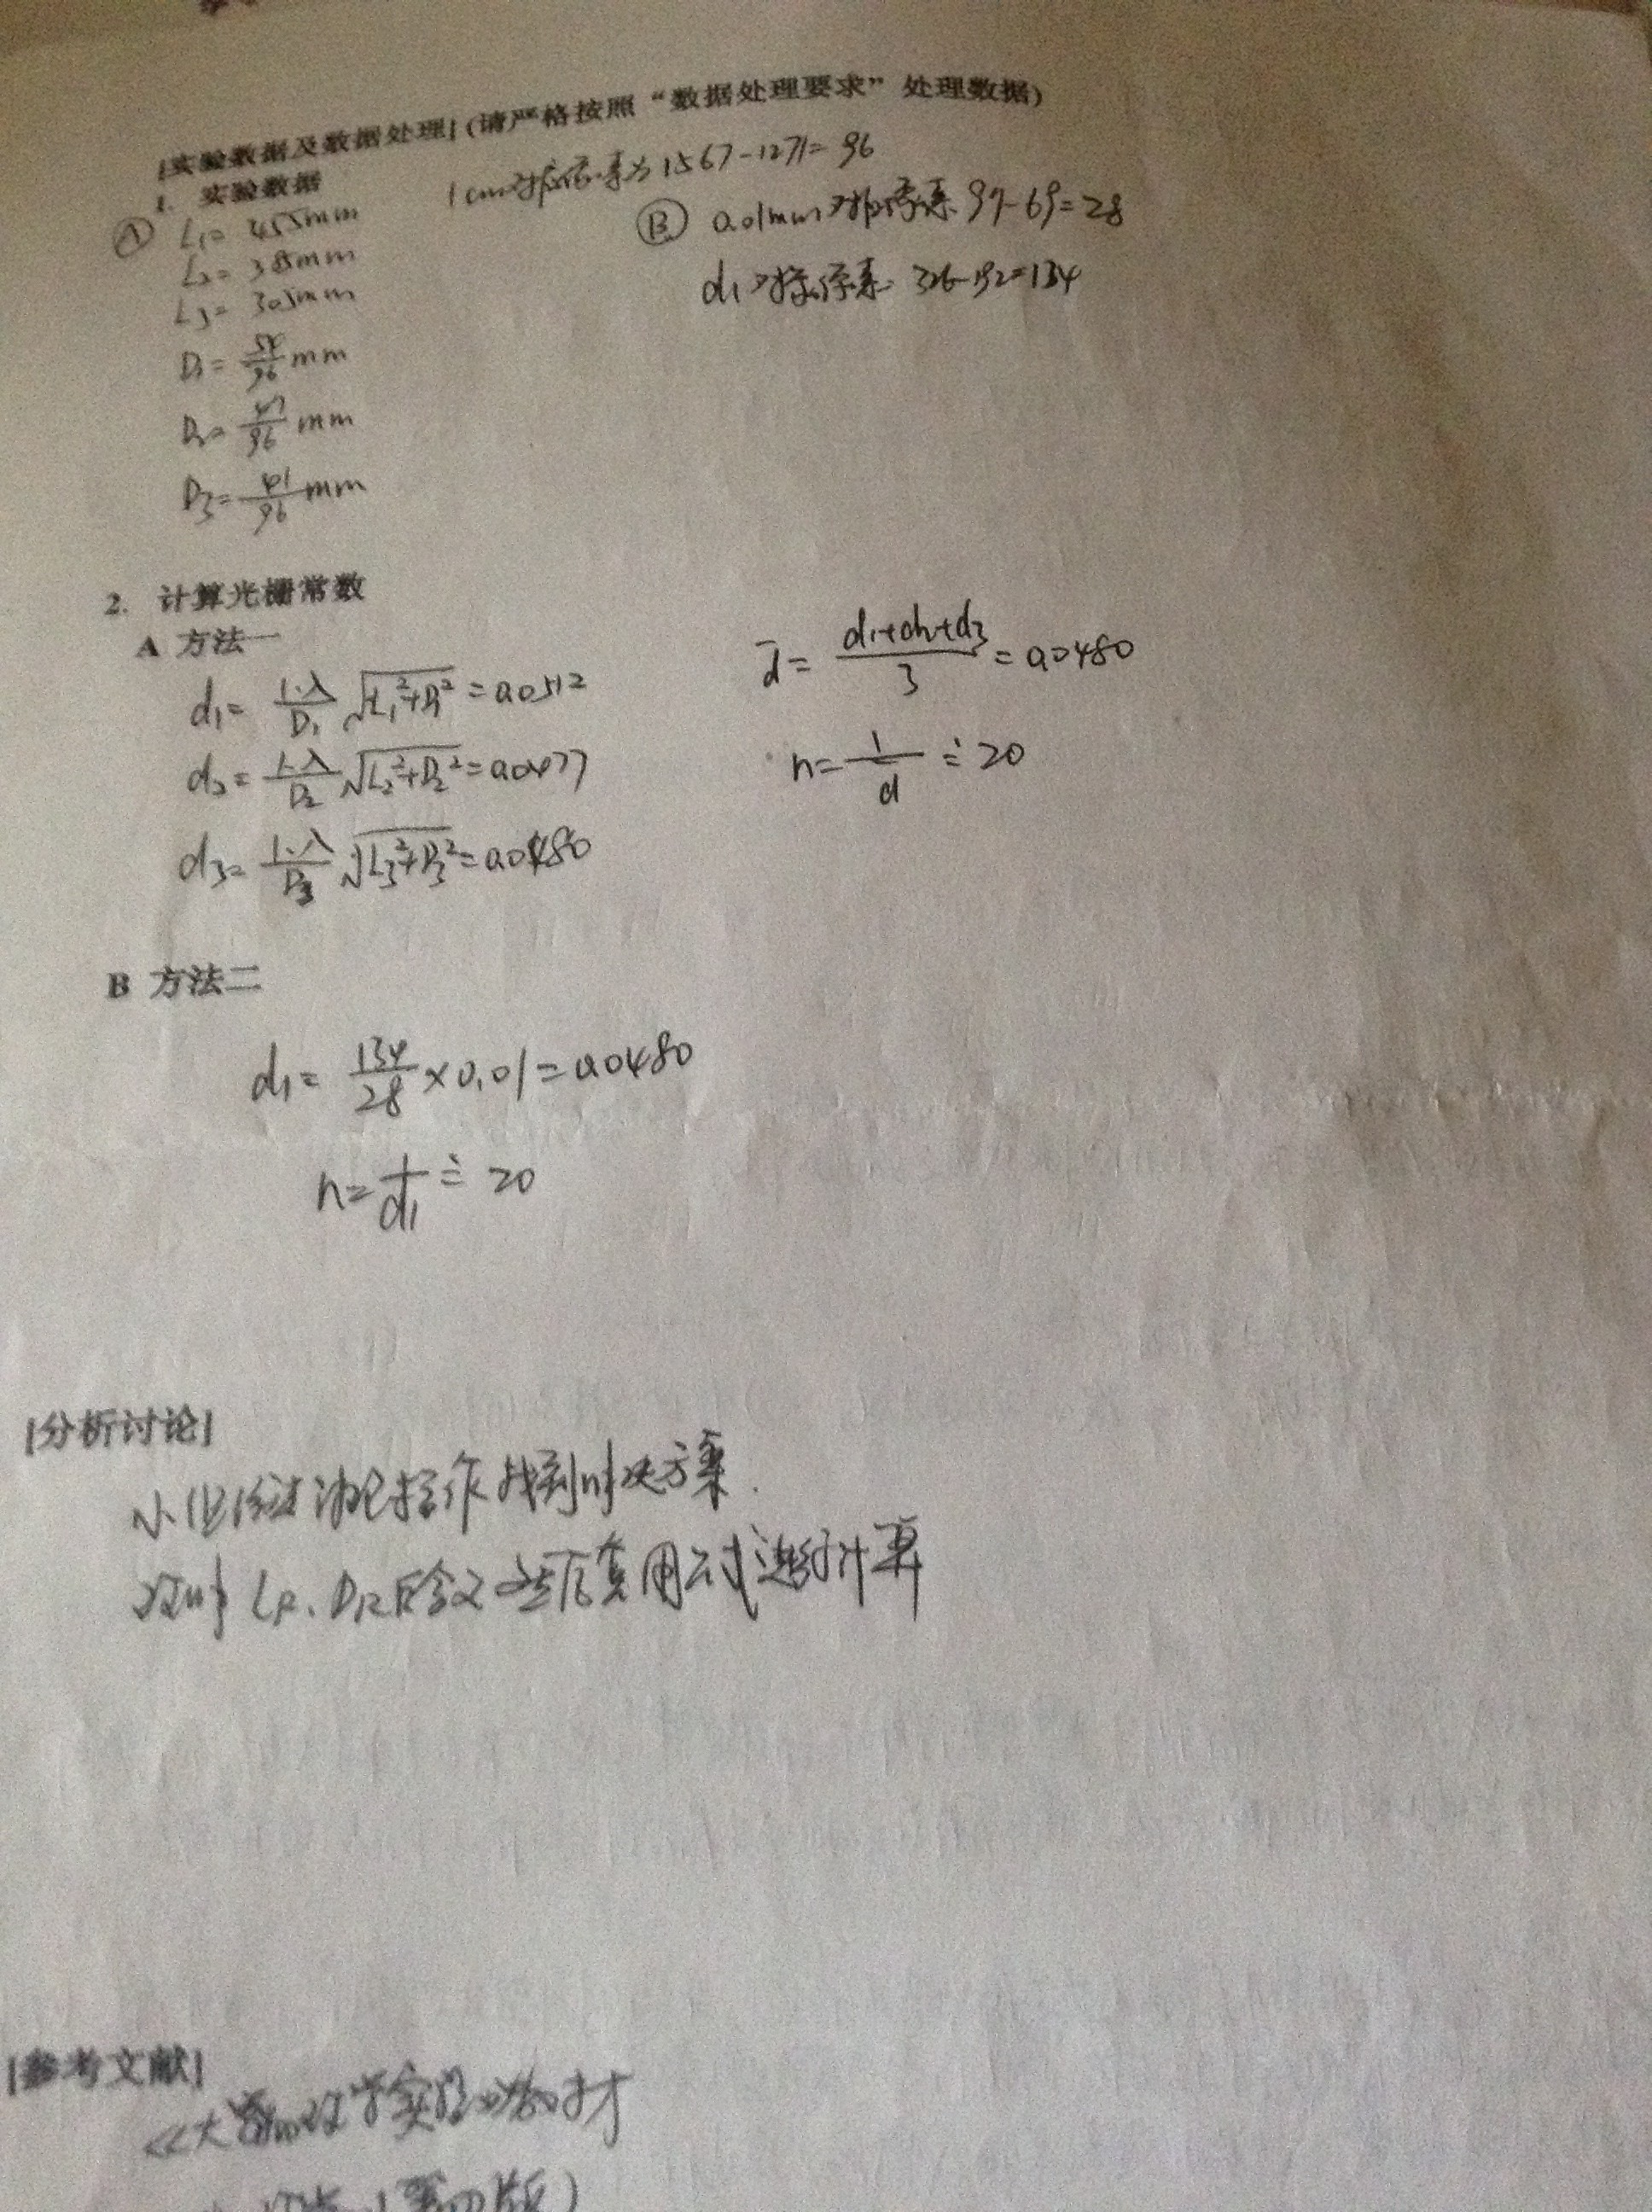 [实验数据及数据处理](请严格按照“数据处理要求”处理数据)
1. 实验数据
1cm对应像素为 1567-1271=96
Ⓐ L₁= 455mm
L₂= 385mm
L₃= 305mm
D₁= 54/96 mm
D₂= 47/96 mm
D₃= 41/96 mm
Ⓑ 0.01mm对应像素 97-69=28
d₁对应像素 326-192=134
2. 计算光栅常数
A 方法一
d₁= 1·λ/D₁ √L₁²+D₁² =0.0512
d₂= 1·λ/D₂ √L₂²+D₂² =0.0477
d₃= 1·λ/D₃ √L₃²+D₃² =0.0480
d̄= d₁+d₂+d₃/3 =0.0480
n= 1/d ≐ 20
B 方法二
d₁= 134/28 ×0.01=0.0480
n= 1/d₁ ≐ 20
[分析讨论]
操作 找到解决方案.
Lk、Dk 含义 用公式进行计算
[参考文献]
《大学物理学实验 教材
第四版)